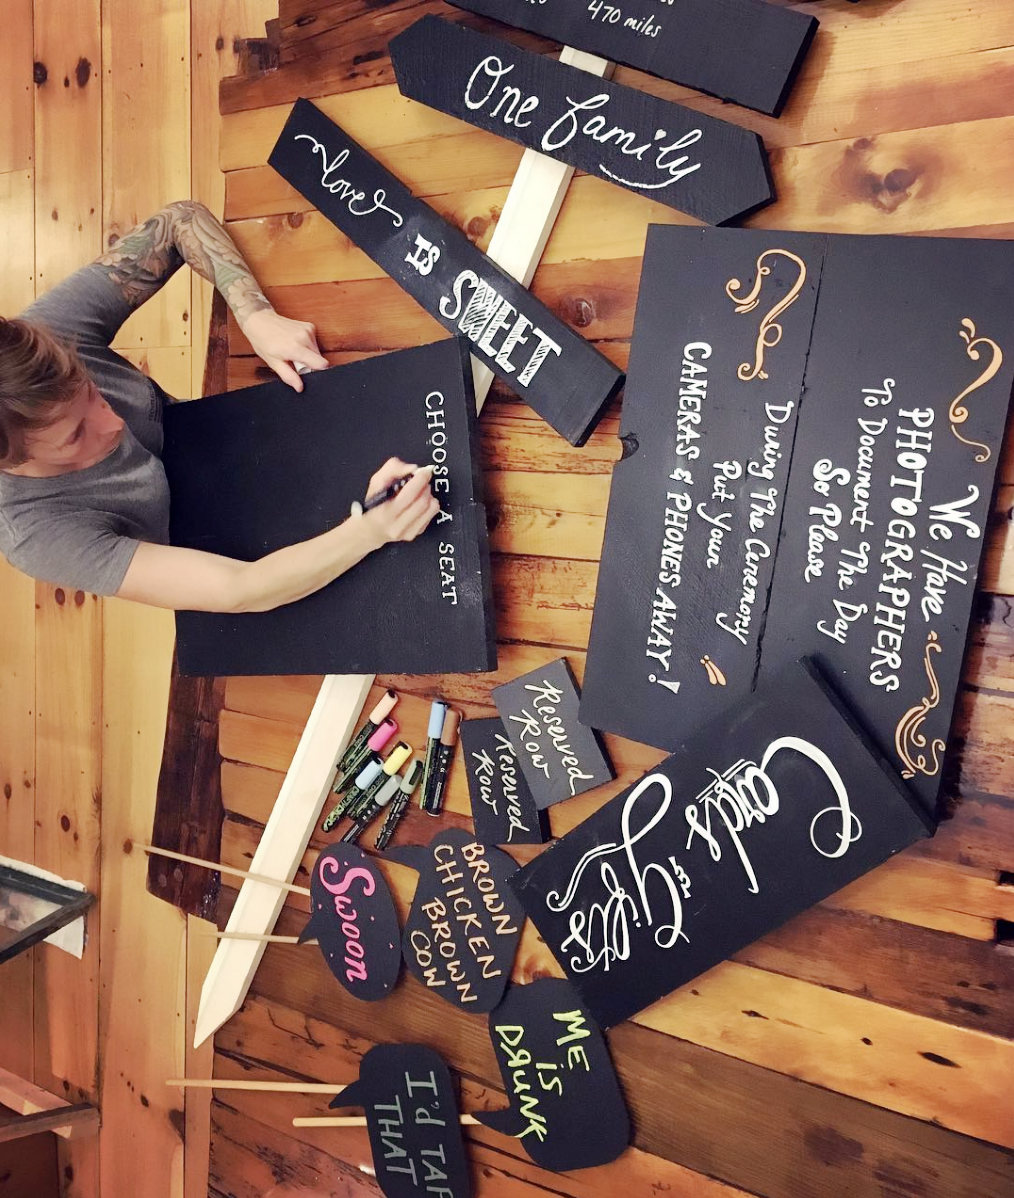 470 miles
One family
love
IS
SWEET
We Have
PHOTOGRAPHERS
To Document The Day
So Please
During The Ceremony
Put Your
CAMERAS & PHONES AWAY!
CHOOSE A SEAT
Reserved
Row
Reserved
Row
Cards
Gifts
Swoon
BROWN
CHICKEN
BROWN
COW
ME
IS
DRUNK
I'd TAP
THAT